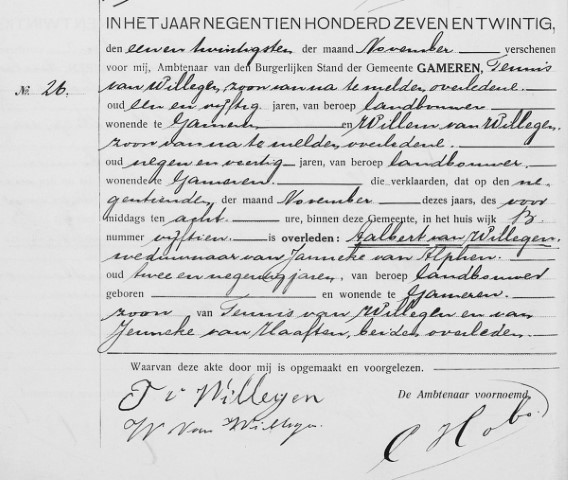 IN HET JAAR NEGENTIEN HONDERD ZEVEN EN TWINTIG,
den een en twintigsten der maand November verschenen
voor mij, Ambtenaar van den Burgerlijken Stand der Gemeente GAMEREN, Teunis
No. 26. van Willegen, zoon van na te melden overledene.
oud een en vijftig jaren, van beroep landbouwer
wonende te Gameren en Willem van Willegen
zoon van na te melden overledene.
oud negen en veertig jaren, van beroep landbouwer.
wonende te Gameren. die verklaarden, dat op den ne-
gentienden der maand November dezes jaars, des voor
middags ten acht ure, binnen deze Gemeente, in het huis wijk B
nummer vijftien. is overleden: Aalbert van Willegen.
weduwnaar van Janneke van Alphen.
oud twee en negentig jaren, van beroep landbouwer
geboren en wonende te Gameren.
zoon van Teunis van Willegen en van
Jenneke van Haaften, beiden overleden.
Waarvan deze akte door mij is opgemaakt en voorgelezen.
T v Willegen
De Ambtenaar voornoemd,
W van Willegen.
C Hobo.